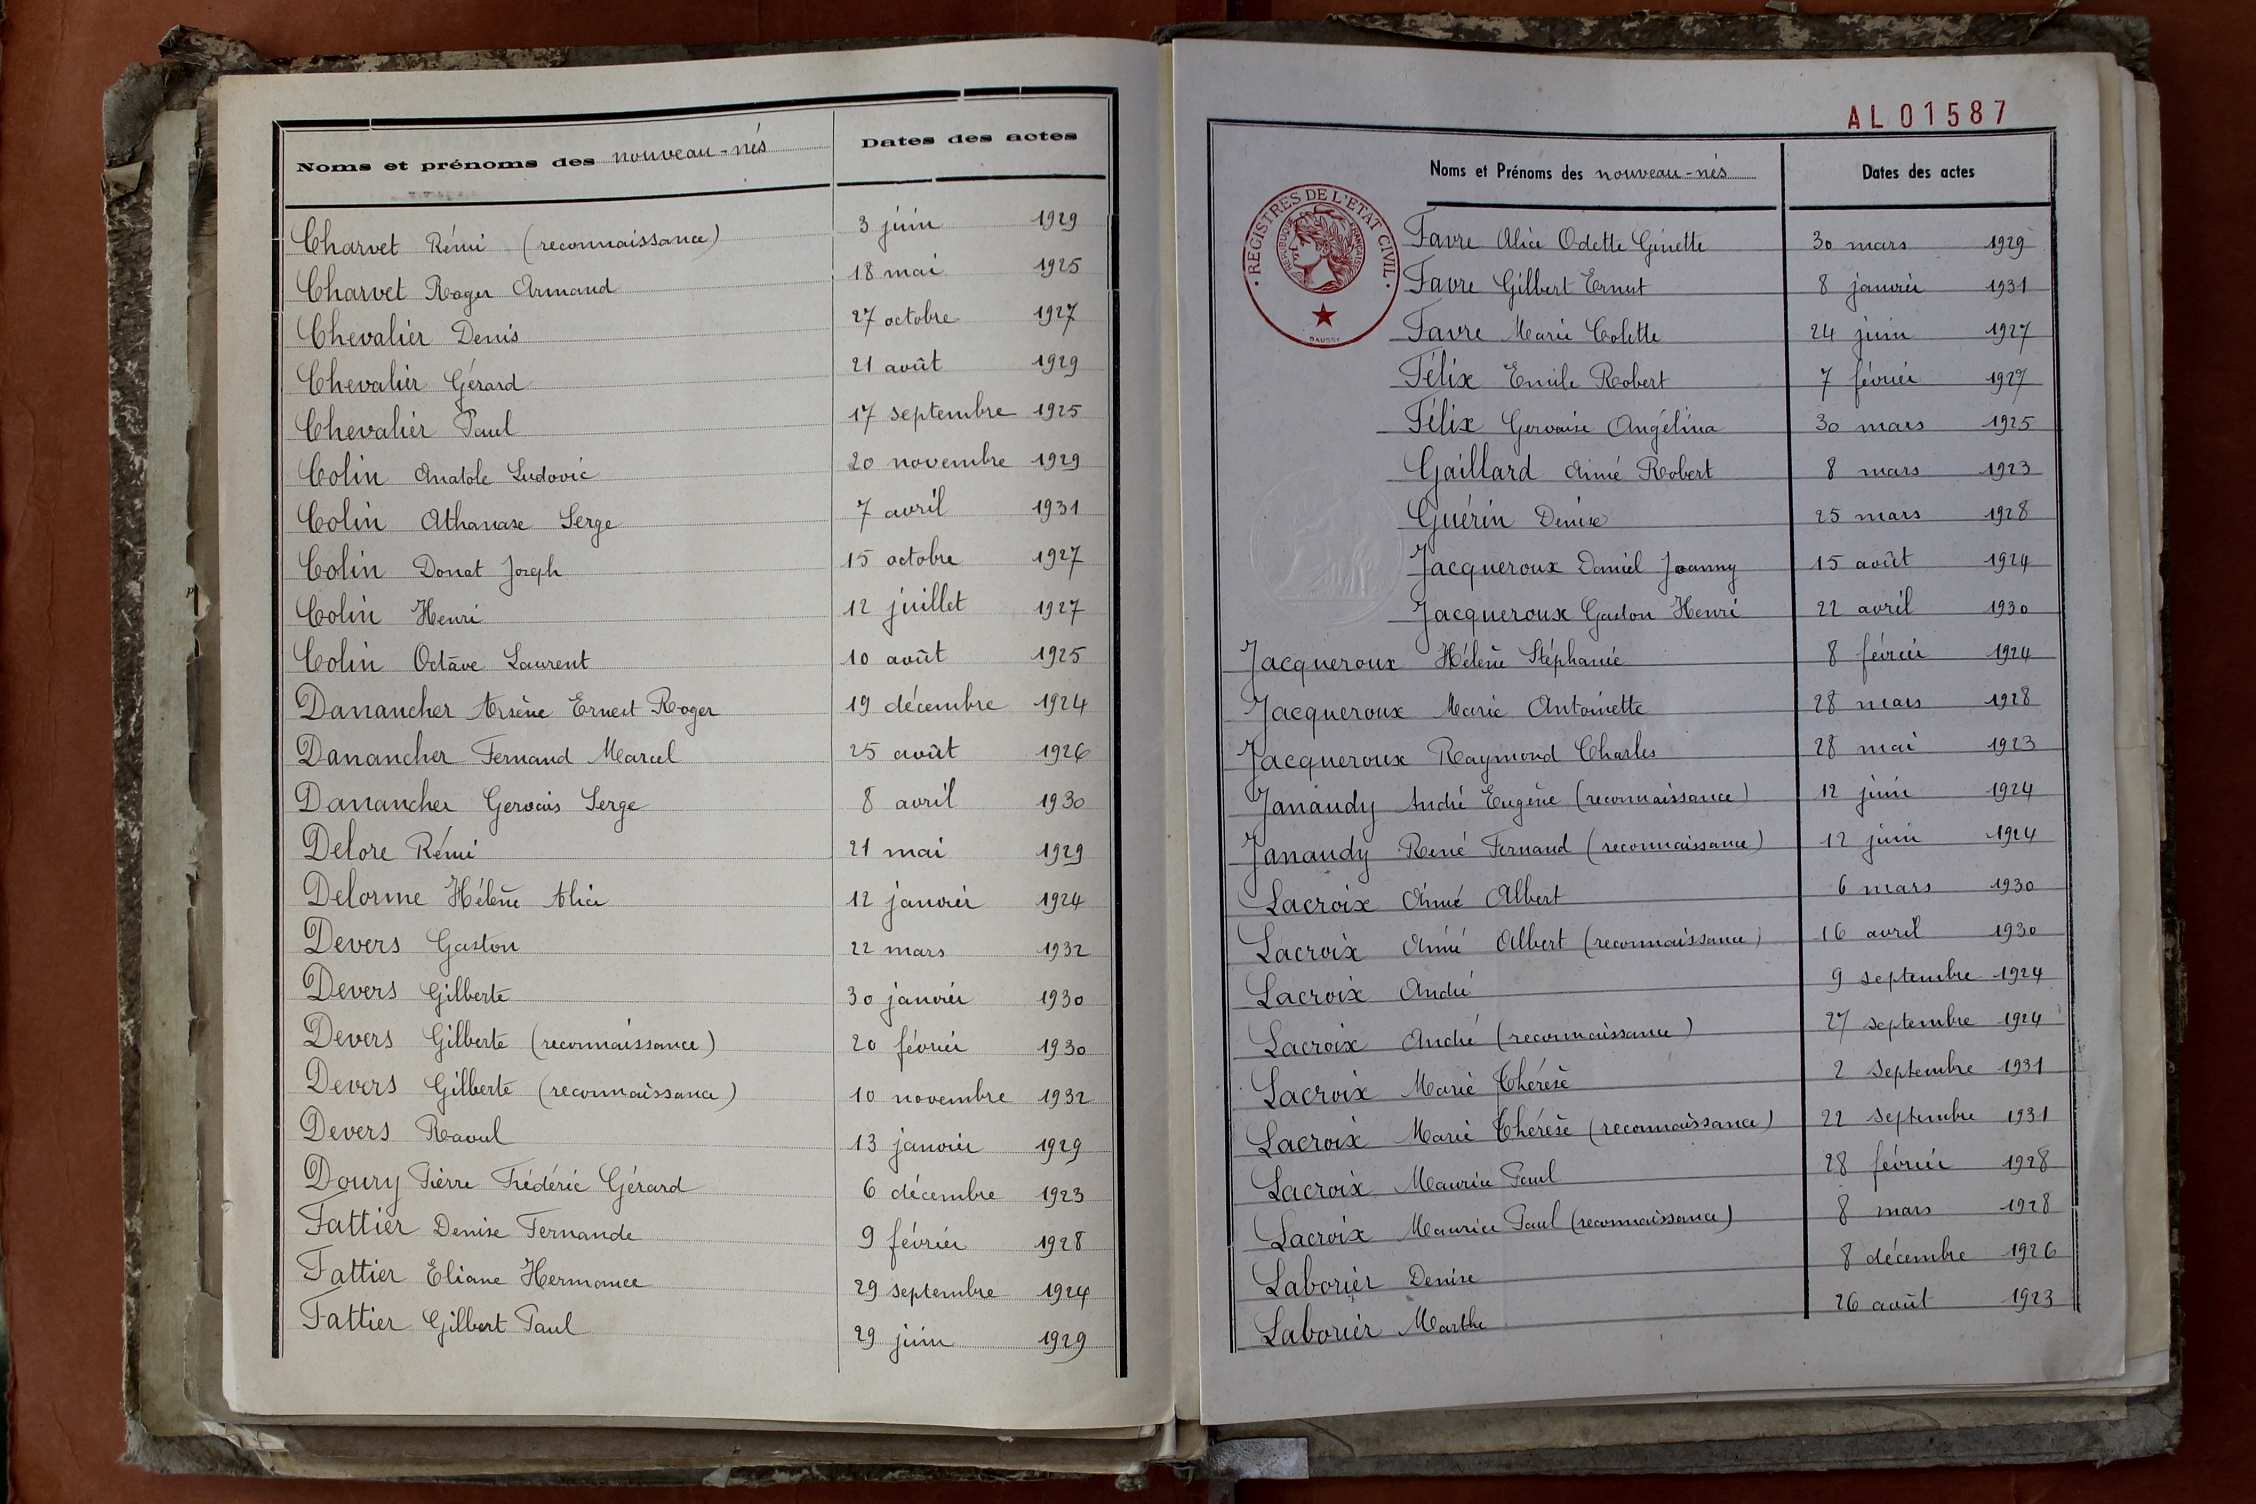 Noms et prénoms des nouveau-nés Dates des actes
Charvet Rémi (reconnaissance) 3 juin 1929
Charvet Roger Armand 18 mai 1925
Chevalier Denis 27 octobre 1927
Chevalier Gérard 21 août 1929
Chevalier Paul 17 septembre 1925
Colin Anatole Ludovic 20 novembre 1929
Colin Athanase Serge 7 avril 1931
Colin Donat Joseph 15 octobre 1927
Colin Henri 12 juillet 1927
Colin Octave Laurent 10 août 1925
Danancher Arsène Ernest Roger 19 décembre 1924
Danancher Fernand Marcel 25 août 1926
Danancher Gervais Serge 8 avril 1930
Delore Rémi 21 mai 1929
Delorme Hélène Alice 12 janvier 1924
Devers Gaston 22 mars 1932
Devers Gilberte 30 janvier 1930
Devers Gilberte (reconnaissance) 20 février 1930
Devers Gilberte (reconnaissance) 10 novembre 1932
Devers Raoul 13 janvier 1929
Doury Pierre Frédéric Gérard 6 décembre 1923
Fattier Denise Fernande 9 février 1928
Fattier Eliane Hermance 29 septembre 1924
Fattier Gilbert Paul 29 juin 1929
AL01587
Noms et Prénoms des nouveau-nés Dates des actes
REGISTRES DE L'ETAT CIVIL
REPUBLIQUE FRANCAISE
Favre Alice Odette Ginette 30 mars 1929
Favre Gilbert Ernest 8 janvier 1931
Favre Marie Colette 24 juin 1927
Félix Emile Robert 7 février 1927
Félix Gervaise Angélina 30 mars 1925
Gaillard Aimé Robert 8 mars 1923
Guérin Denise 25 mars 1928
Jacqueroux Daniel Joanny 15 août 1924
Jacqueroux Gaston Henri 22 avril 1930
Jacqueroux Hélène Stéphanie 8 février 1924
Jacqueroux Marie Antoinette 28 mars 1928
Jacqueroux Raymond Charles 28 mai 1923
Janaudy André Eugène (reconnaissance) 12 juin 1924
Janaudy René Fernand (reconnaissance) 12 juin 1924
Lacroix Aimé Albert 6 mars 1930
Lacroix Aimé Albert (reconnaissance) 16 avril 1930
Lacroix André 9 septembre 1924
Lacroix André (reconnaissance) 27 septembre 1924
Lacroix Marie Thérèse 2 septembre 1931
Lacroix Marie Thérèse (reconnaissance) 22 septembre 1931
Lacroix Maurice Paul 28 février 1928
Lacroix Maurice Paul (reconnaissance) 8 mars 1928
Laborier Denise 8 décembre 1926
Laborier Marthe 26 août 1923